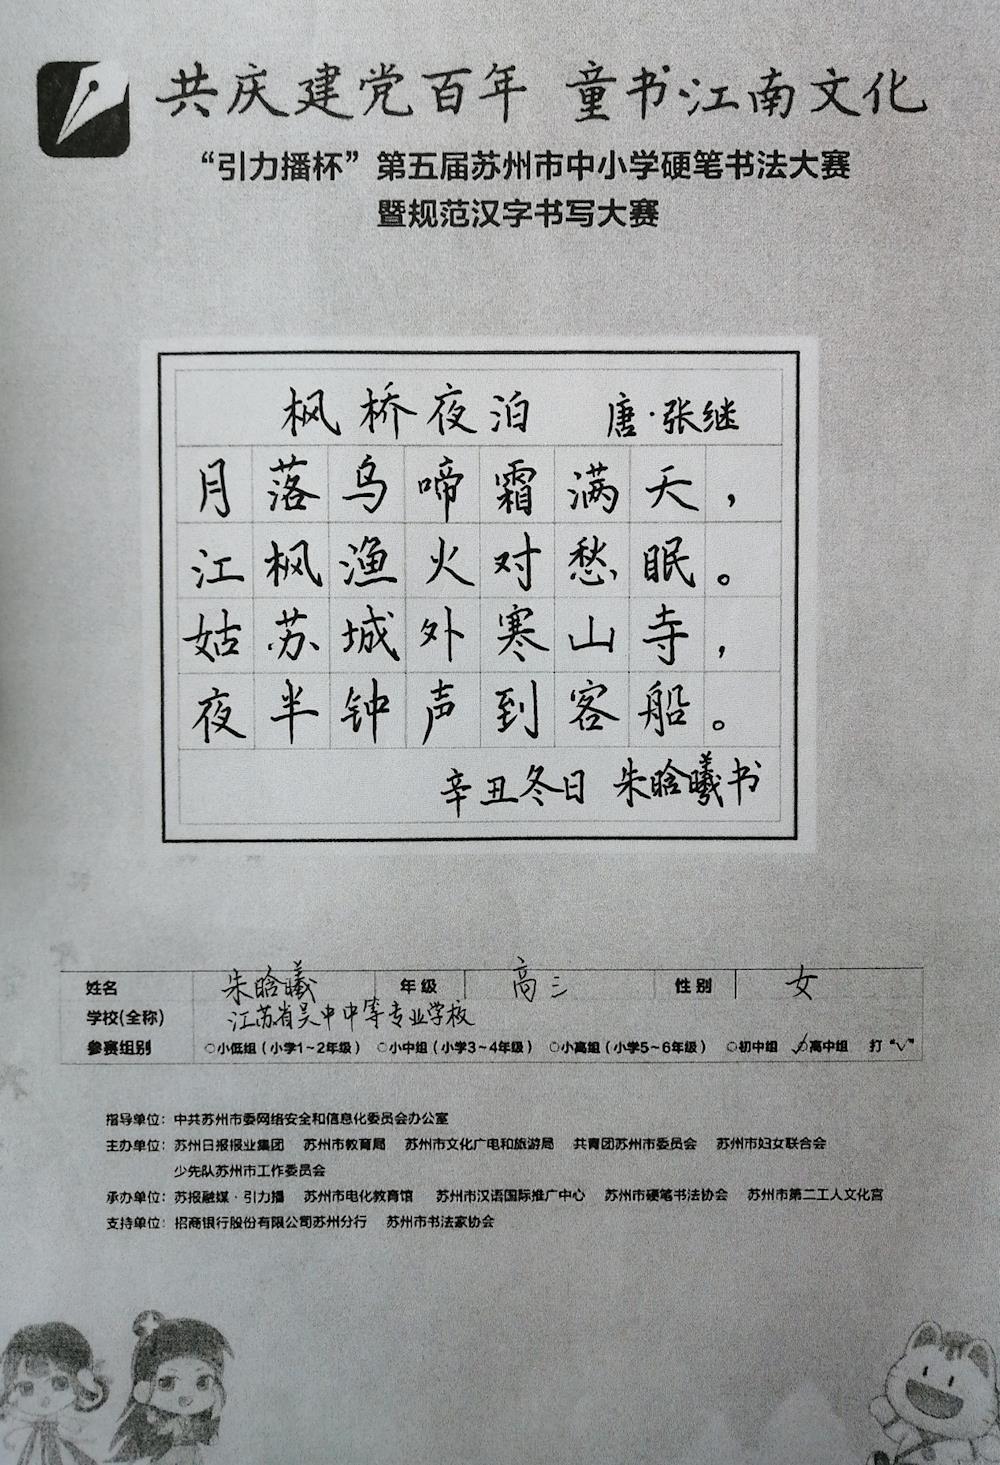 共庆建党百年 童书江南文化
“引力播杯”第五届苏州市中小学硬笔书法大赛
暨规范汉字书写大赛
枫桥夜泊 唐·张继
月落乌啼霜满天，
江枫渔火对愁眠。
姑苏城外寒山寺，
夜半钟声到客船。
辛丑冬日 朱晗曦书
姓名 朱晗曦 年级 高三 性别 女
学校(全称) 江苏省吴中中等专业学校
参赛组别 ○小低组(小学1~2年级) ○小中组(小学3~4年级) ○小高组(小学5~6年级) ○初中组 ○高中组 打“√”
指导单位：中共苏州市委网络安全和信息化委员会办公室
主办单位：苏州日报报业集团 苏州市教育局 苏州市文化广电和旅游局 共青团苏州市委员会 苏州市妇女联合会
少先队苏州市工作委员会
承办单位：苏报融媒·引力播 苏州市电化教育馆 苏州市汉语国际推广中心 苏州市硬笔书法协会 苏州市第二工人文化宫
支持单位：招商银行股份有限公司苏州分行 苏州市书法家协会